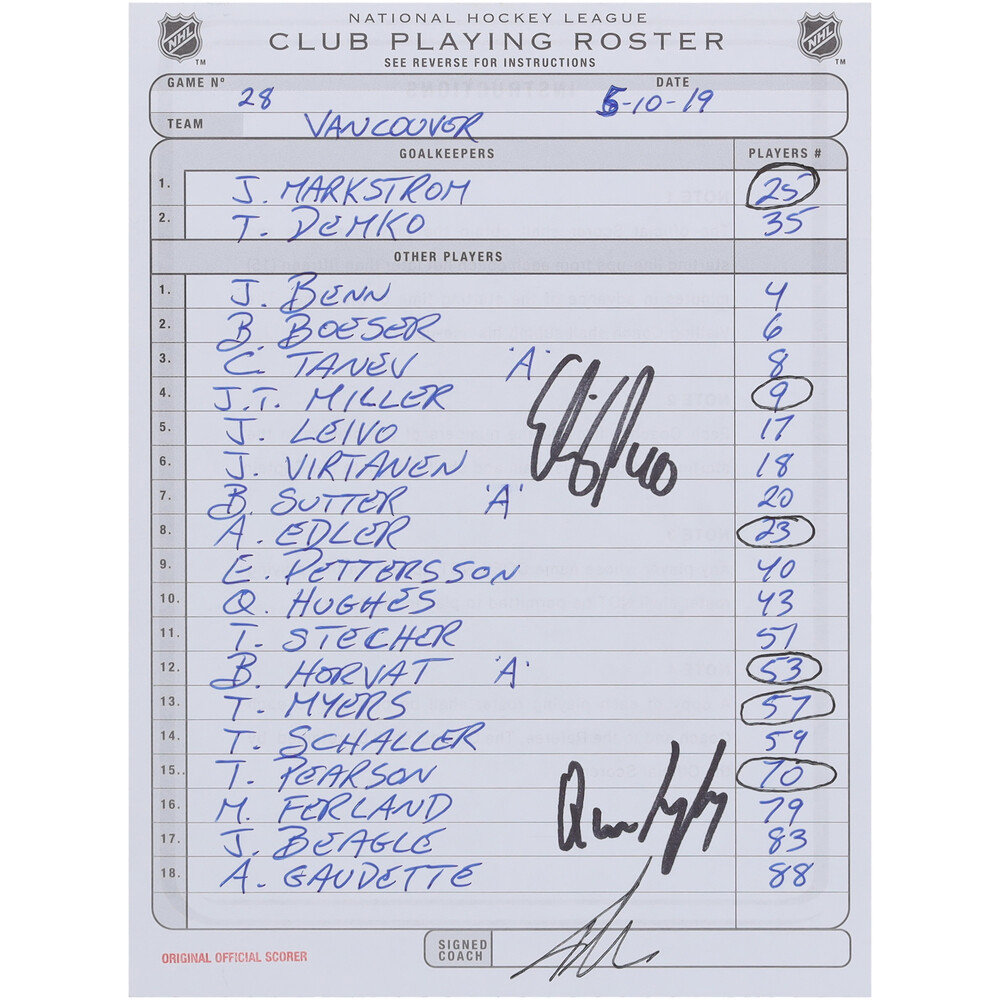 NATIONAL HOCKEY LEAGUE
NHL TM CLUB PLAYING ROSTER NHL TM
SEE REVERSE FOR INSTRUCTIONS
GAME Nº 28 DATE 5-10-19
TEAM VANCOUVER
GOALKEEPERS PLAYERS #
1. J. MARKSTROM 25
2. T. DEMKO 35
OTHER PLAYERS
1. J. BENN 4
2. B. BOESER 6
3. C. TANEV 'A' 8
4. J.T. MILLER 9
5. J. LEIVO 17
6. J. VIRTANEN 18
7. B. SUTTER 'A' 20
8. A. EDLER 23
9. E. PETTERSSON 40
10. Q. HUGHES 43
11. T. STECHER 51
12. B. HORVAT 'A' 53
13. T. MYERS 57
14. T. SCHALLER 59
15. T. PEARSON 70
16. M. FERLAND 79
17. J. BEAGLE 83
18. A. GAUDETTE 88
ORIGINAL OFFICIAL SCORER
SIGNED COACH